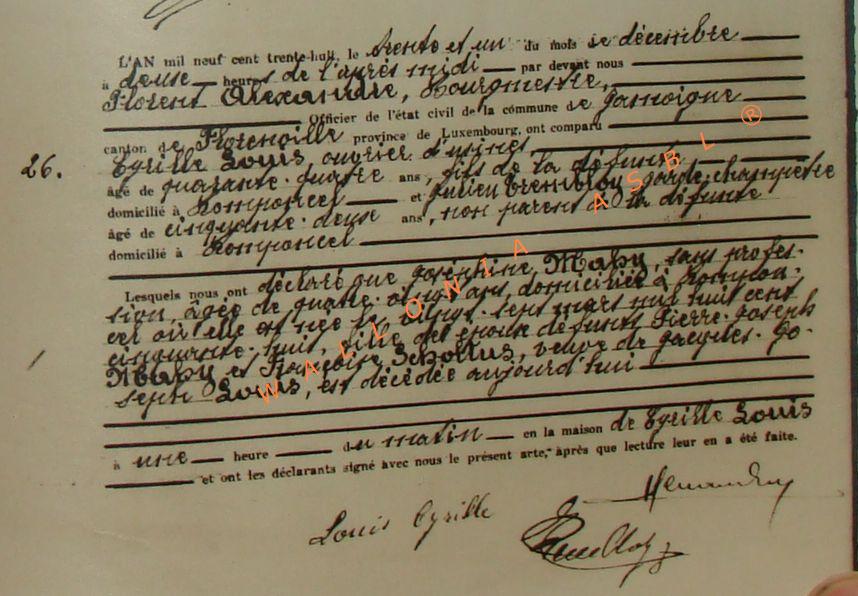 L'AN mil neuf cent trente-huit, le trente et un du mois de décembre
à deuse heures de l'après midi par devant nous
Florent Alexandre, Bourgmestre,
Officier de l'état civil de la commune de Jamoigne
canton de Florenville province de Luxembourg, ont comparu
26. Cyrille Louis, ouvrier d'usines
âgé de quarante-quatre ans, fils de la défunte
domicilié à Romponcel et Lucien Trembloy, garde-champêtre
âgé de cinquante-deuse ans, non parent de la défunte
domicilié à Romponcel
Lesquels nous ont déclaré que Joséphine Mahy, sans profes-
sion, âgée de quatre-vingt ans, domiciliée à Rompon-
cel où elle est née le vingt-sept mars mil huit cent
cinquante-huit, fille des époux défunts Pierre-Joseph
Mahy et Françoise Schollus, veuve de Jacques-Jo-
seph Louis, est décédée aujourd'hui
à une heure du matin en la maison de Cyrille Louis
et ont les déclarants signé avec nous le présent acte, après que lecture leur en a été faite.
Louis Cyrille
WALLONIA ASBL ®